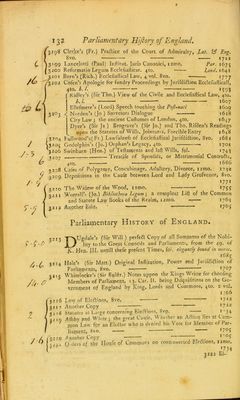 132 Parliamentary History of England.
3198 Clerke's (Fr.) Practice of the Court of Admiralty, Lat. & Eng. 8vo. 1722
3199 Lancelotti (Paul) Institut. Juris Canonici, 12mo. Par. 1675
3200 Reformatio Legum Ecclesiasticar. 4to. Lond. 1641
3201 Burn's (Rich.) Ecclesiastical Law, 4 vol. 8vo. 1777
3202 Cosen's Apologie for sundry Proceedings by Jurisdiction Ecclesiastical,
4to. b. l. 1593
Ridley's (Sir Tho.) View of the Civile and Ecclesiastical Law, 4to.
b. l. 1607
Ellesmere's (Lord) Speech touching the Postnati 1609
3203 Norden's (Jo.) Surveiors Dialogue 1618
City Law; the ancient Customes of London, 1647
Dyer's (Sir Ja.) Brograve's (Sir Jo.) and Tho. Risden's Readings
upon the Statutes of Wills, Jointures, Forcible Entry 1648
3204 (Fr.) Lawfulness of Ecclesiastical Jurisdiction, 8vo. 1681
3205 Godolphin's (Jo.) Orphan's Legacy, 4to. 1701
3206 Swinburn (Hen.) of Testaments and last Wills, fol. 1743
3207 Treatise of Spousals, or Matrimonial Contracts,
4to. 1686
3208 Cases of Polygamy, Concubinage, Adultery, Divorce, 12mo. 1732
3209 Depositions in the Cause between Lord and Lady Grosvenor, 8vo.
3210 The Widow of the Wood, 12mo. 1755
3211 Worrall's (Jo.) Bibliotheca Legum; a compleat List of the Common
and Statute Law Books of the Realm, 12mo.
3212 Another Edit. 1765
Parliamentary HISTORY OF ENGLAND.
3213 DUgdale's (Sir Will.) perfect Copy of all Summons of the Nobi-
lity to the Great Councils and Parliaments, from the 49. of
K. Hen. III. untill these present Times, fol. elegantly bound in morac.
1685
3214 Hale's (Sir Matt.) Original Institution, Power and Jurisdiction of
Parliaments, 8vo. 1707
3215 Whitelocke's (Sir Bulst.) Notes uppon the Kings Writt for choosing
Members of Parliament, 13. Car. II. being Disquisitions on the Go-
vernment of England by King, Lords and Commons, 4to. 2 vol.
1766
3216 Law of Elections, 8vo. 1722
3217 Another Copy 1722
3218 Statutes at Large concerning Elections, 8vo. 1734
3219 Ashby and White; the great Case, Whether an Action lies at Com-
mon Law for an Elector who is denied his Vote for Member of Par-
liament, 8vo. 1705
3220 Another Copy
3221 Orders of the House of Commons on controverted Elections, 12mo.